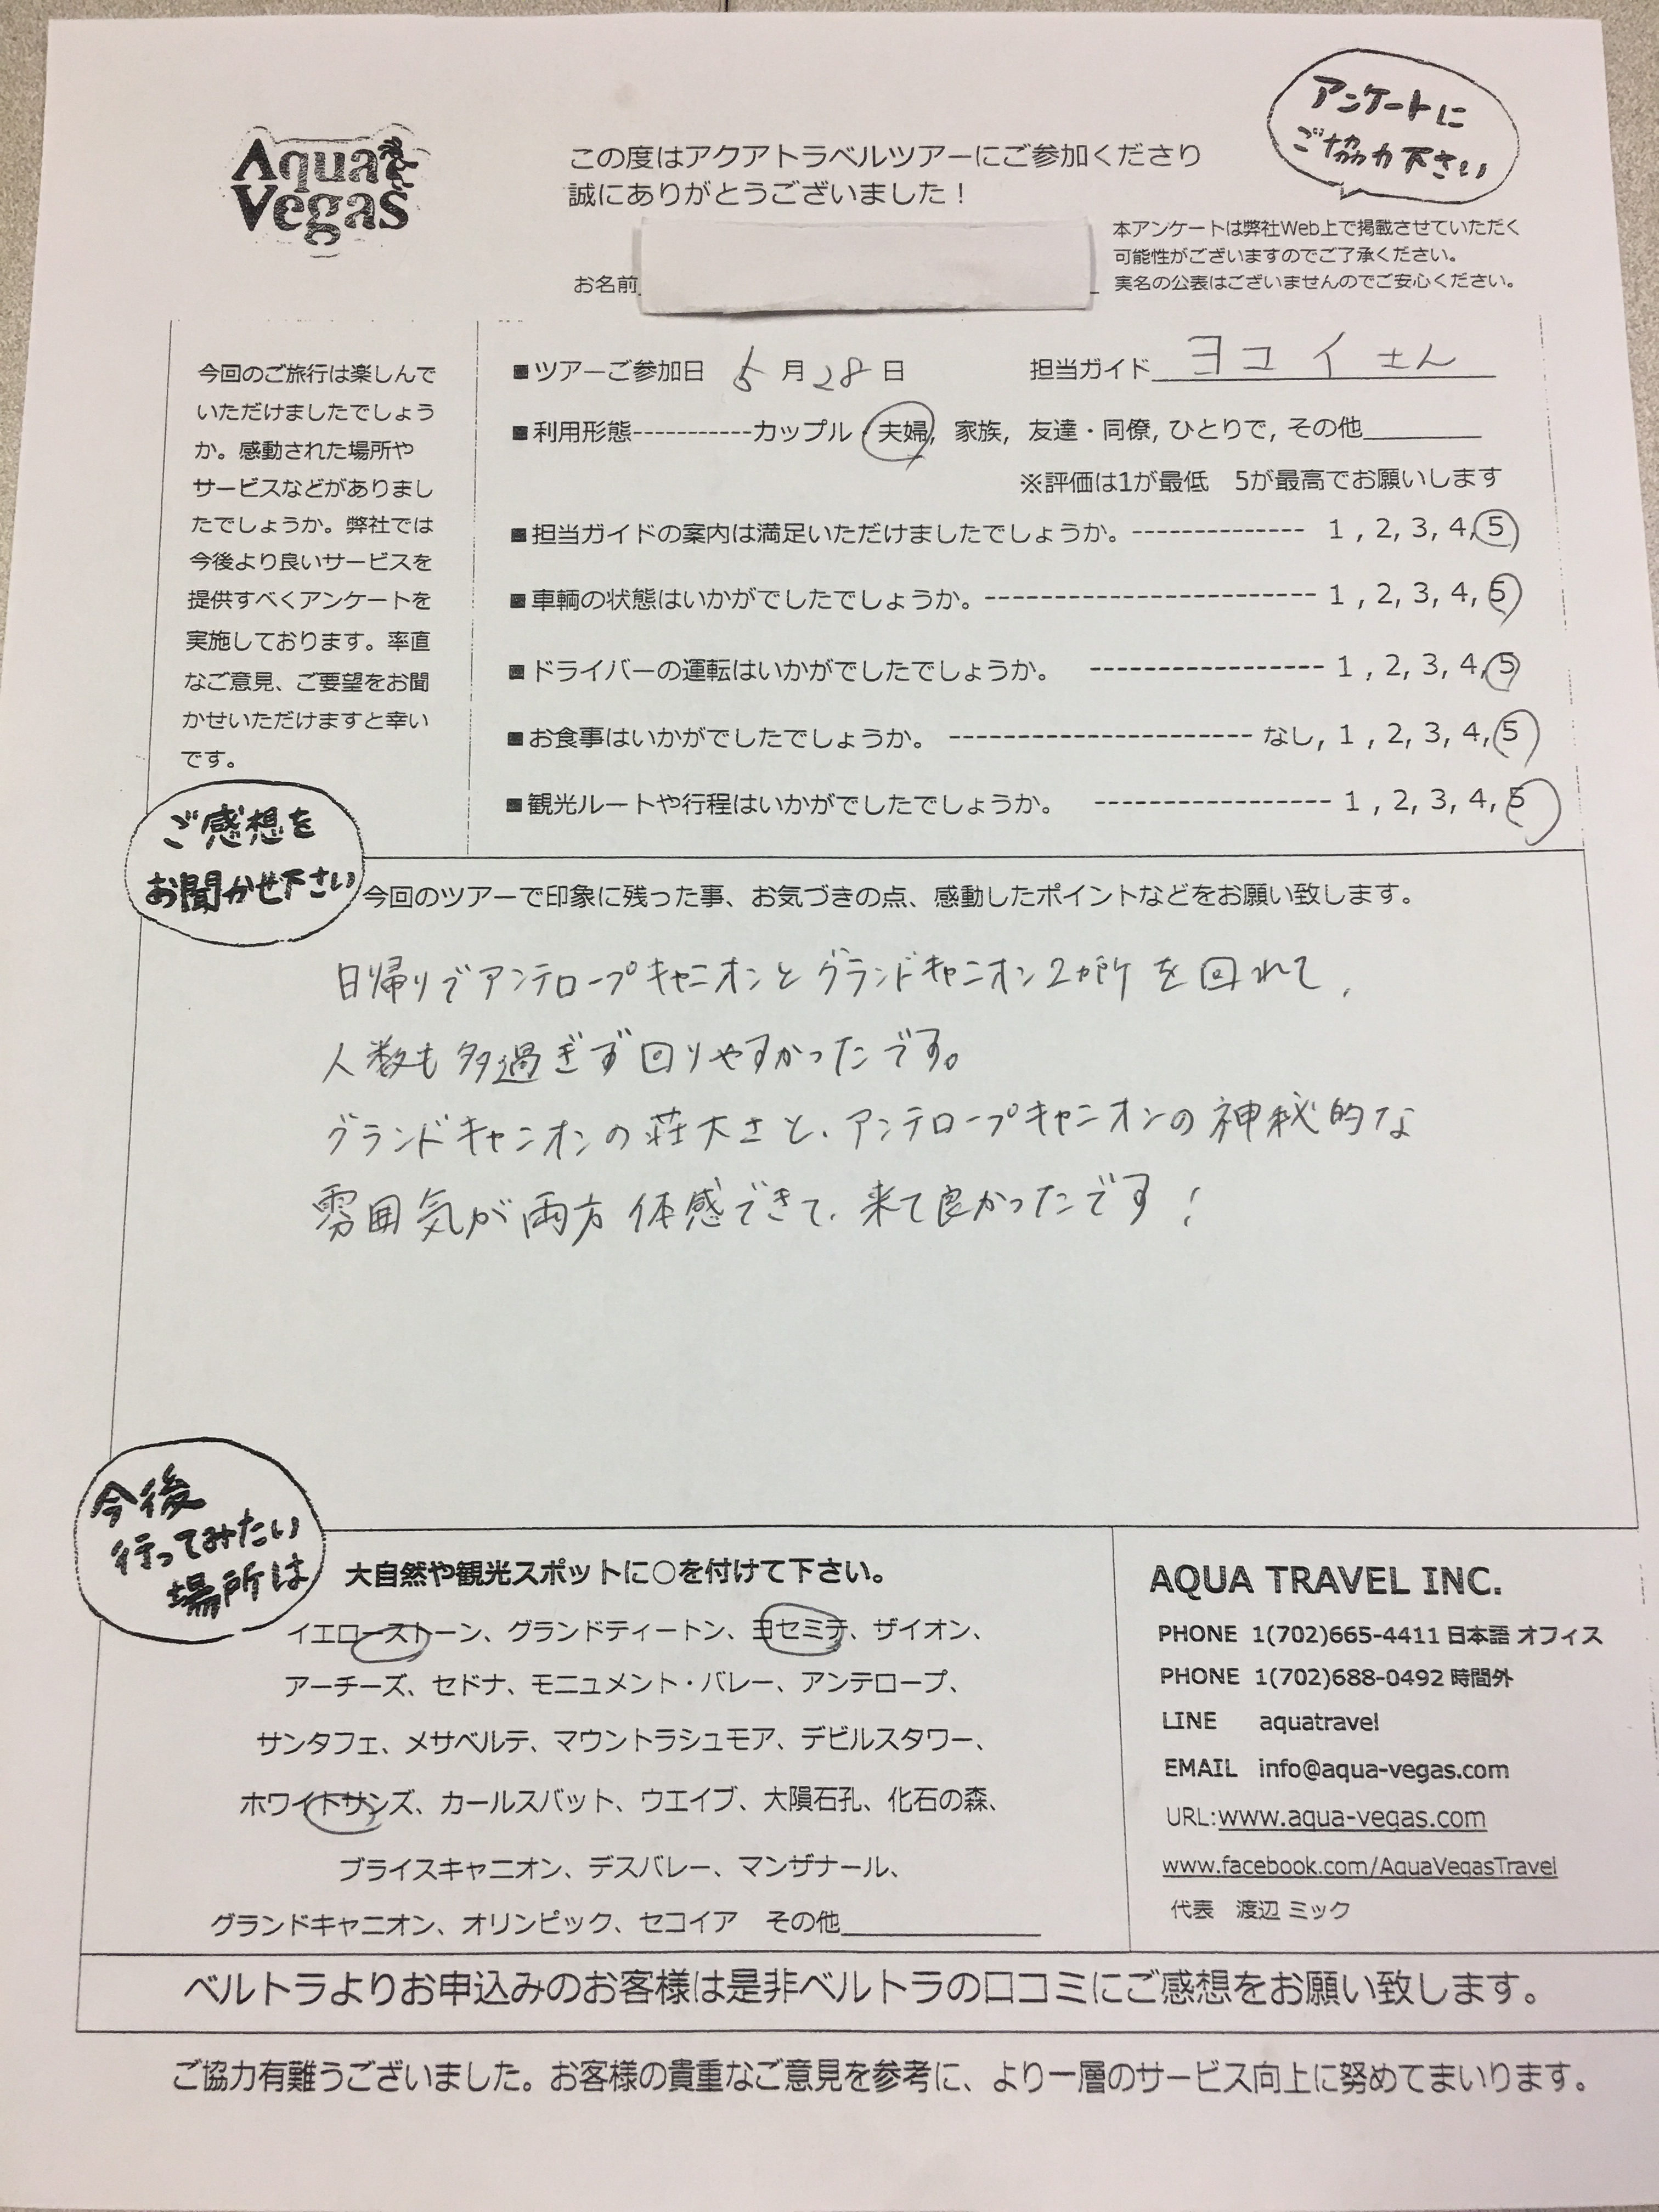 Aqua
Vegas
この度はアクアトラベルツアーにご参加くださり
誠にありがとうございました！
アンケートに
ご協力下さい
本アンケートは弊社Web上で掲載させていただく
可能性がございますのでご了承ください。
実名の公表はございませんのでご安心ください。
お名前
今回のご旅行は楽しんで
いただけましたでしょう
か。感動された場所や
サービスなどがありまし
たでしょうか。弊社では
今後より良いサービスを
提供すべくアンケートを
実施しております。率直
なご意見、ご要望をお聞
かせいただけますと幸い
です。
■ツアーご参加日 5 月 28 日 担当ガイド ヨコイさん
■利用形態-----------カップル・夫婦, 家族, 友達・同僚, ひとりで, その他
※評価は1が最低 5が最高でお願いします
■担当ガイドの案内は満足いただけましたでしょうか。-------------- 1 , 2, 3, 4, 5
■車輌の状態はいかがでしたでしょうか。--------------------------- 1 , 2, 3, 4, 5
■ドライバーの運転はいかがでしたでしょうか。 ------------------- 1 , 2, 3, 4, 5
■お食事はいかがでしたでしょうか。 ------------------------- なし, 1 , 2, 3, 4, 5
■観光ルートや行程はいかがでしたでしょうか。 ------------------- 1 , 2, 3, 4, 5
ご感想を
お聞かせ下さい
今回のツアーで印象に残った事、お気づきの点、感動したポイントなどをお願い致します。
日帰りでアンテロープキャニオンとグランドキャニオン2か所を回れて、
人数も多過ぎず回りやすかったです。
グランドキャニオンの荘大さと、アンテロープキャニオンの神秘的な
雰囲気が両方体感できて、来て良かったです！
今後
行ってみたい
場所は
大自然や観光スポットに○を付けて下さい。
イエローストーン、グランドティートン、ヨセミテ、ザイオン、
アーチーズ、セドナ、モニュメント・バレー、アンテロープ、
サンタフェ、メサベルテ、マウントラシュモア、デビルスタワー、
ホワイトサンズ、カールスバット、ウエイブ、大隕石孔、化石の森、
ブライスキャニオン、デスバレー、マンザナール、
グランドキャニオン、オリンピック、セコイア その他
AQUA TRAVEL INC.
PHONE 1(702)665-4411 日本語 オフィス
PHONE 1(702)688-0492 時間外
LINE aquatravel
EMAIL info@aqua-vegas.com
URL:www.aqua-vegas.com
www.facebook.com/AquaVegasTravel
代表 渡辺 ミック
ベルトラよりお申込みのお客様は是非ベルトラの口コミにご感想をお願い致します。
ご協力有難うございました。お客様の貴重なご意見を参考に、より一層のサービス向上に努めてまいります。